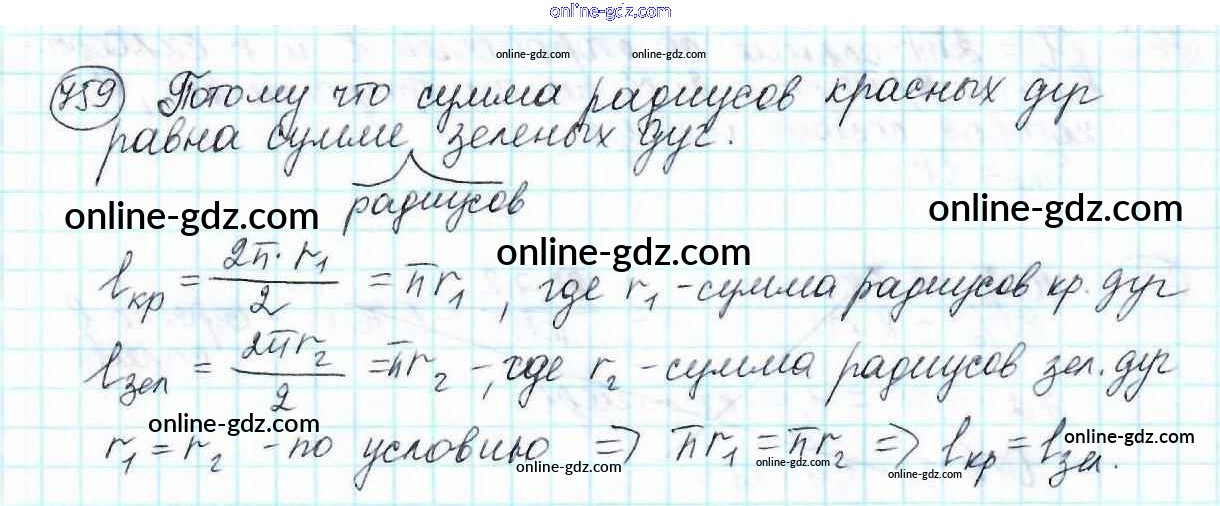 online-gdz.com
online-gdz.com online-gdz.com
759 Потому что сумма радиусов красных дуг
равна сумме зеленых дуг.
радиусов
online-gdz.com online-gdz.com
online-gdz.com
lкр = 2π·r1/2 = πr1, где r1 - сумма радиусов кр. дуг
lзел = 2πr2/2 = πr2 -, где r2 - сумма радиусов зел. дуг
online-gdz.com
r1 = r2 - по условию => πr1 = πr2 => lкр = lзел.
online-gdz.com
online-gdz.com online-gdz.com
online-gdz.com